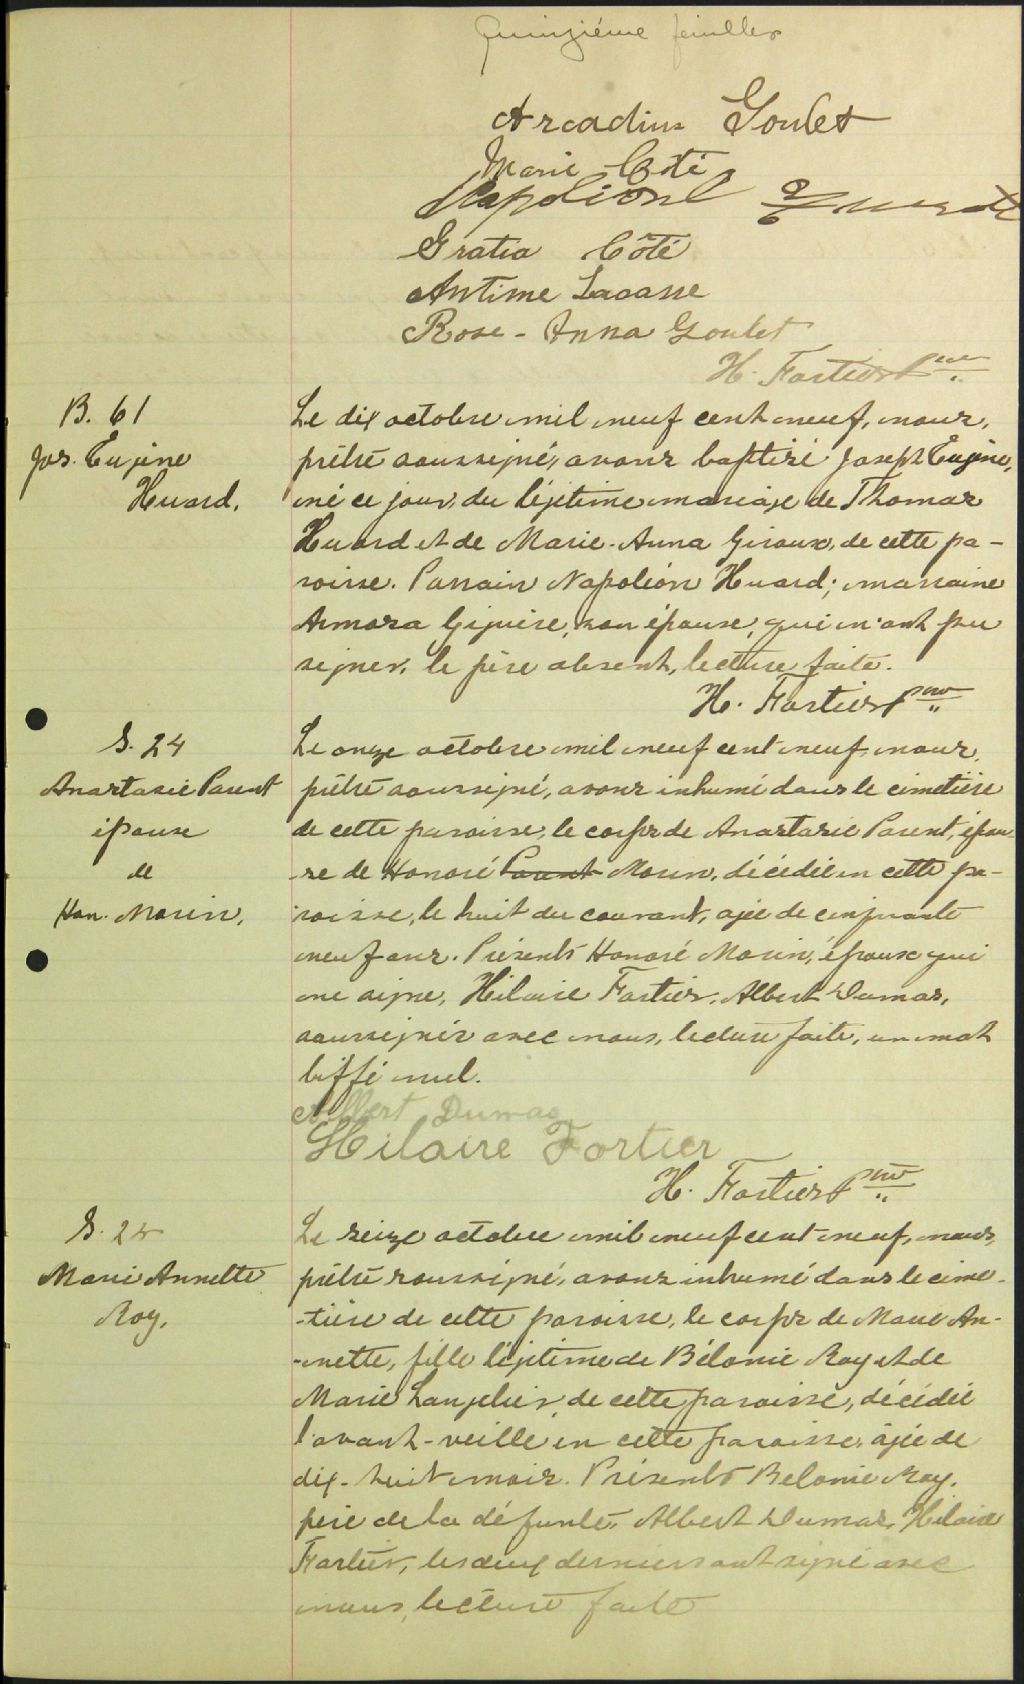 Quinzième feuillet
Arcadius Goulet
Marie Côté
Napoléon
Gratia Côté
Antime Lacasse
Rose-Anna Goulet
H. Fortier Ptre
B. 61
Jos. Eugène
Huard.
Le dix octobre mil neuf cent neuf, nous,
prêtre soussigné, avons baptisé Joseph Eugène,
né ce jour, du légitime mariage de Thomas
Huard et de Marie-Anna Giroux, de cette pa-
roisse. Parrain Napoléon Huard; marraine
Armora Giguère, son épouse, qui n'ont pu
signer, le père absent, lecture faite.
H. Fortier Ptre
S. 24
Anastasie Parent
épouse
de
Hon. Morin.
Le onze octobre mil neuf cent neuf, nous,
prêtre soussigné, avons inhumé dans le cimetière
de cette paroisse, le corps de Anastasie Parent, épou-
-se de Honoré Parent Morin, décédée en cette pa-
roisse, le huit du courant, agée de cinquante
neuf ans. Présents Honoré Morin, époux qui
ne signe, Hilaire Fortier, Albert Dumas,
soussignés avec nous, lecture faite, un mot
biffé nul.
Albert Dumas
Hilaire Fortier
H. Fortier Ptre
S. 25
Marie Annette
Roy.
Le seize octobre mil neuf cent neuf, nous,
prêtre soussigné, avons inhumé dans le cime-
-tière de cette paroisse, le corps de Marie An-
-nette, fille légitime de Bélonie Roy et de
Marie Langelier, de cette paroisse, décédée
l'avant-veille en cette paroisse, âgée de
dix-huit mois. Présents Belonie Roy,
père de la défunte, Albert Dumas, Hilaire
Fortier, les deux derniers ont signé avec
nous, lecture faite